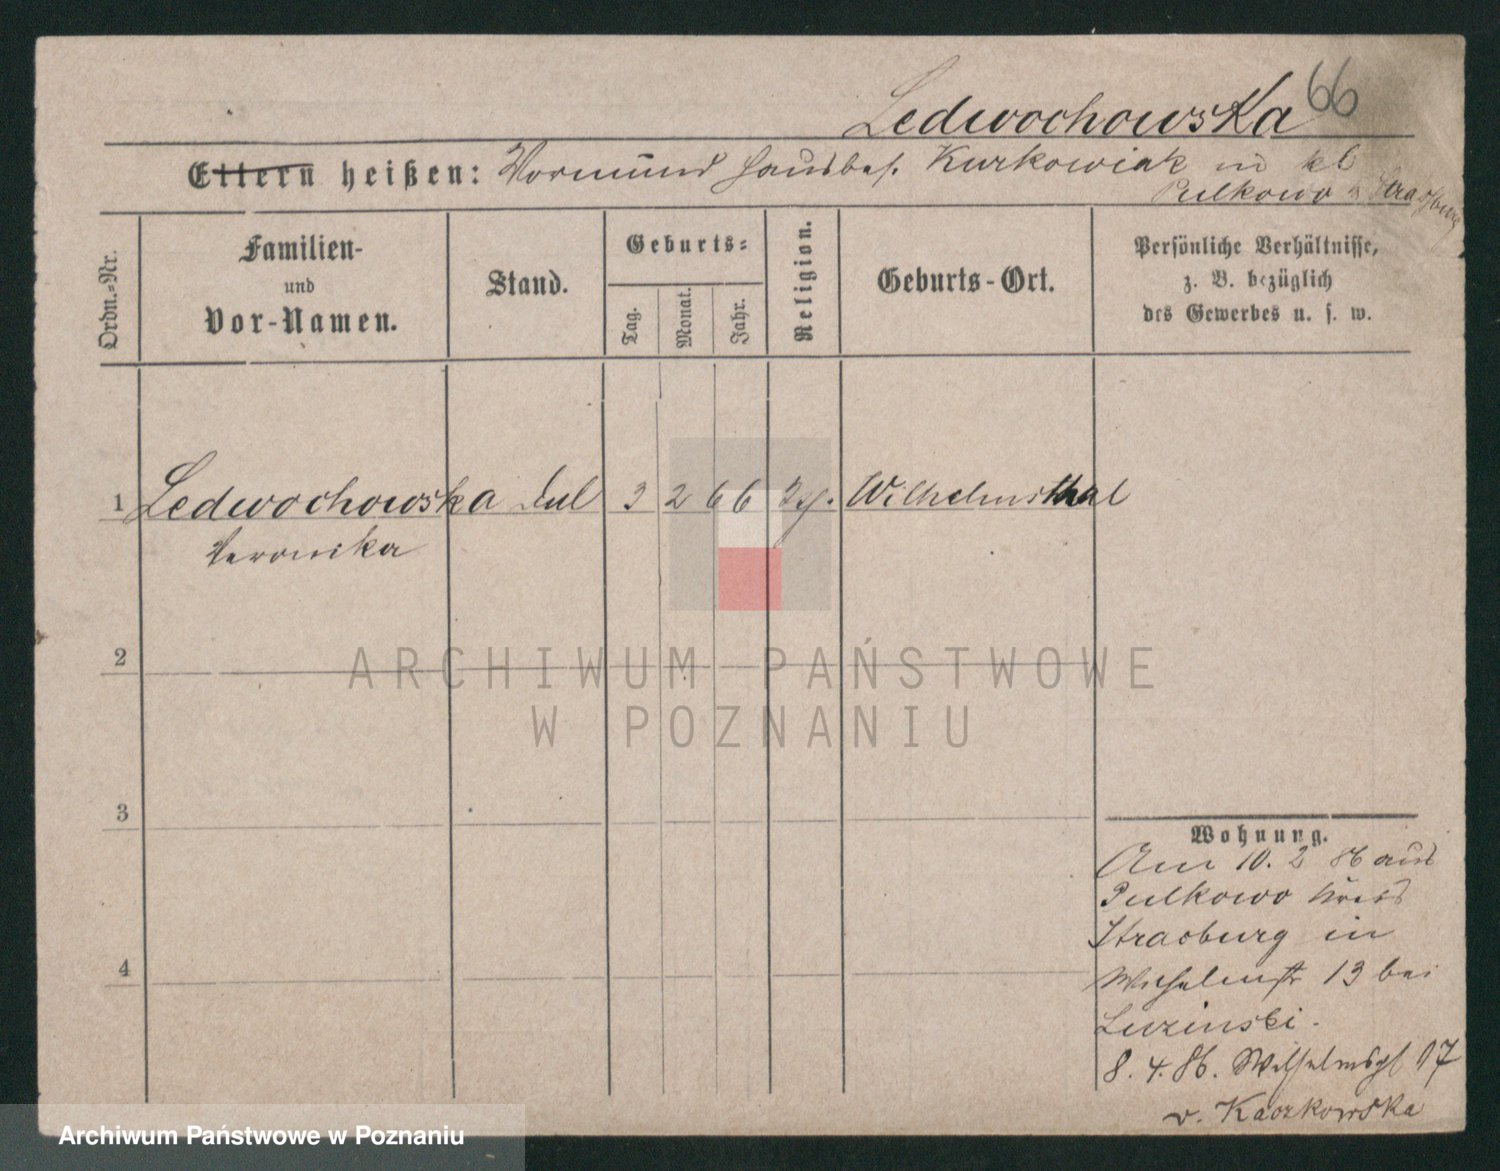 Ledwochowska 66
Eltern heißen: Vormund Hausbes. Kurkowiak in kl
Pulkowo b Strasburg
Ordn.-Nr.
Familien-
und
Vor-Namen.
Stand.
Geburts-
Tag.
Monat.
Jahr.
Religion.
Geburts-Ort.
Persönliche Verhältnisse,
z. B. bezüglich
des Gewerbes u. s. w.
1 Ledwochowska 3 2 66 Wilhelmsthal
Veronika
2
3
4
Wohnung.
Am 10. 2 86 aus
Pulkowo Kreis
Strasburg in
Wilhelmstr 13 bei
Luzinski.
8. 4. 86. Wilhelmspl 17
v. Kaczkowska
ARCHIWUM PAŃSTWOWE
W POZNANIU
Archiwum Państwowe w Poznaniu